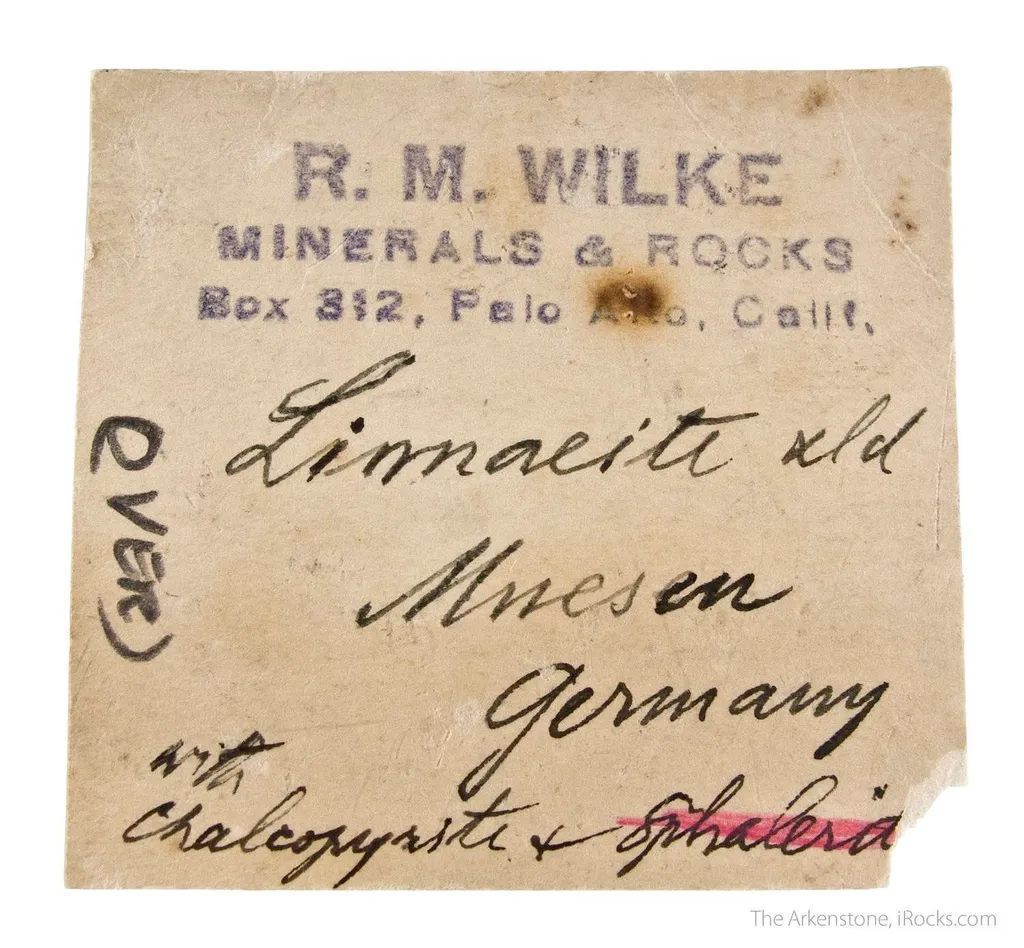 R. M. WILKE
MINERALS & ROCKS
Box 312, Palo Alto, Calif.
Linnaeite xld
Muesen
Germany
with
chalcopyrite & Sphaleri
OVER)
The Arkenstone, iRocks.com